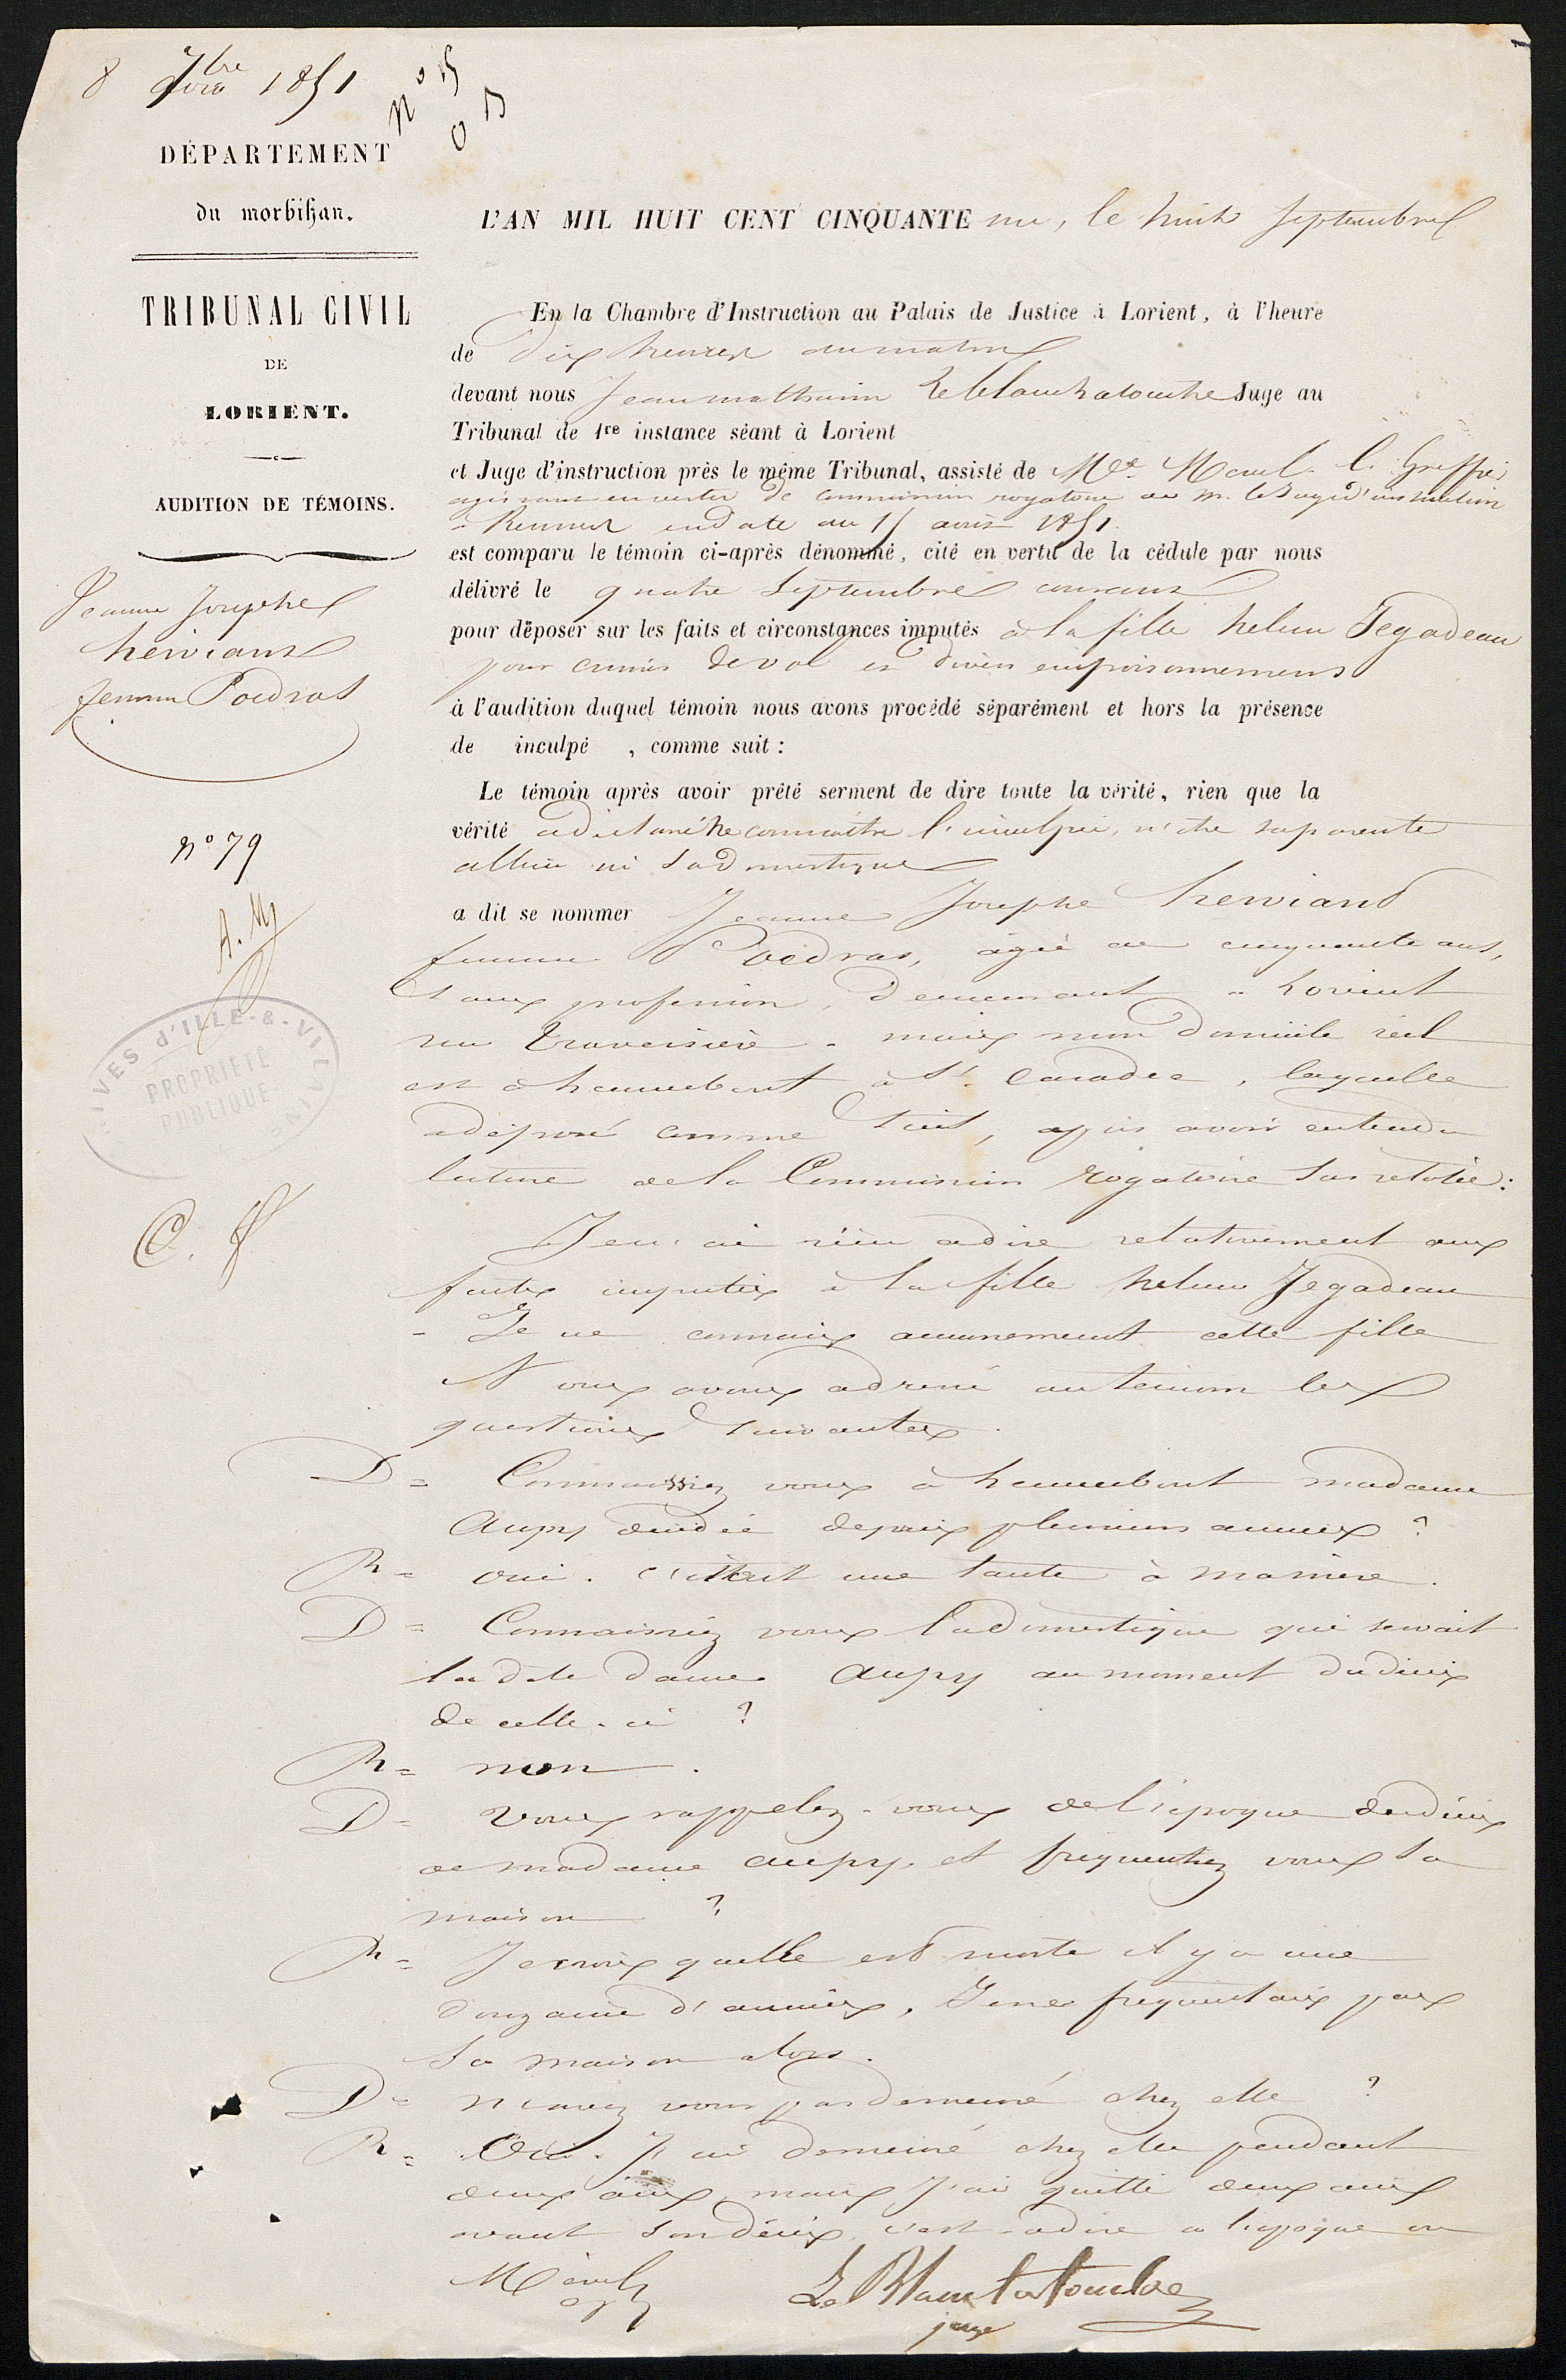 8 7bre 1851
DÉPARTEMENT
du morbihan.
TRIBUNAL CIVIL
DE
LORIENT.
AUDITION DE TÉMOINS.
Jeanne Josephe
hervian
femme Poëdras
n° 79
A. M
ARCHIVES d'ILLE-&-VILAINE
PROPRIÉTÉ
PUBLIQUE
C. f
L'AN MIL HUIT CENT CINQUANTE un, le huit Septembre
En la Chambre d'Instruction au Palais de Justice à Lorient, à l'heure
de dix heures du matin
devant nous Jean mathurin Le blanchatouche Juge au
Tribunal de 1re instance séant à Lorient
et Juge d'instruction près le même Tribunal, assisté de Me l. Greffier
agissant en vertu de commission rogatoire de m. le Juge d'instruction
à Rennes en date du 1851.
est comparu le témoin ci-après dénommé, cité en vertu de la cédule par nous
délivré le quatre Septembre courant
pour déposer sur les faits et circonstances imputés à la fille helene Jegadeau
pour crimes de vol et divers empoisonnements
à l'audition duquel témoin nous avons procédé séparément et hors la présence
de inculpé , comme suit :
Le témoin après avoir prêté serment de dire toute la vérité, rien que la
vérité a dit connaitre l'inculpée, n'être sa parente
alliée ni sa domestique
a dit se nommer Jeanne Josephe herviant
femme Poëdras, agée de cinquante ans,
Sans profession, demeurant à Lorient
rue traversière - mais mon domicile réel
est à hennebont à St. Caradec, laquelle
a déposé comme Suit, après avoir entendu
lecture de la Commission rogatoire Sus relatée :
Je n'ai rien à dire relativement aux
faits imputés à la fille helene Jegadeau
- Je ne connais aucunement cette fille
Nous avons adressé au temoin les
questions Suivantes.
D = Connaissiez vous à hennebont madame
Aupy décédée depuis plusieurs années ?
R = oui. c'était une tante à ma mère.
D = Connaissiez vous la domestique qui servait
la dte dame Aupy au moment du décès
de celle-ci ?
R = non.
D = Vous rappelez-vous de l'epoque du décès
de madame aupy, et frequentiez vous Sa
maison ?
R = Je crois quelle est morte il y a une
douzaine d'années, Je ne frequentais pas
Sa maison alors.
D = n'avez vous pas demeuré chez elle ?
R = Oui. J'ai demeuré chez elle pendant
deux ans mais j'ai quitté deux ans
avant Son décès, c'est-à dire a l'epoque ou
Le Blanchatouche
juge